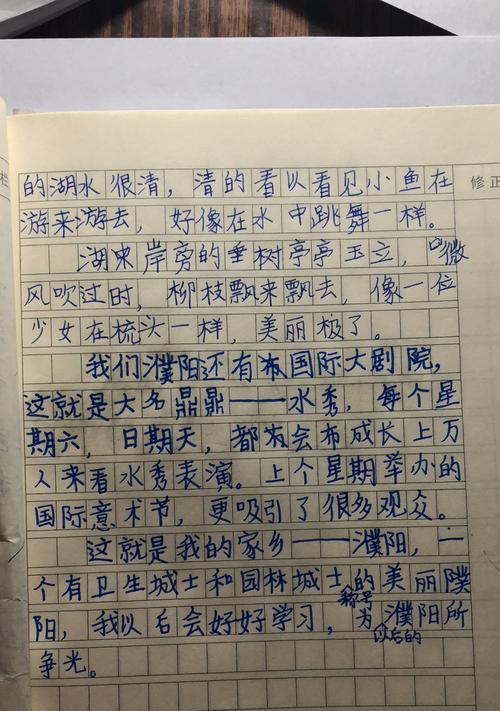 的湖水很清，清的看以看见小鱼在
游来游去，好像在水中跳舞一样。
湖束岸旁的垂树亭亭玉立，微
风吹过时，柳枝飘来飘去，像一位
少女在梳头一样，美丽极了。
我们濮阳还有布国际大剧院，
这就是大名鼎鼎——水秀，每个星
期六，日期天，都为会布成长上万
人来看水秀表演。上个星期举办的
国际意术节，更吸引了很多观众。
这就是我的家乡——濮阳，一
个有卫生城士和园林城士称号的美丽濮
阳，我以后会好好学习，为濮阳以后的所
争光。
修正
栏